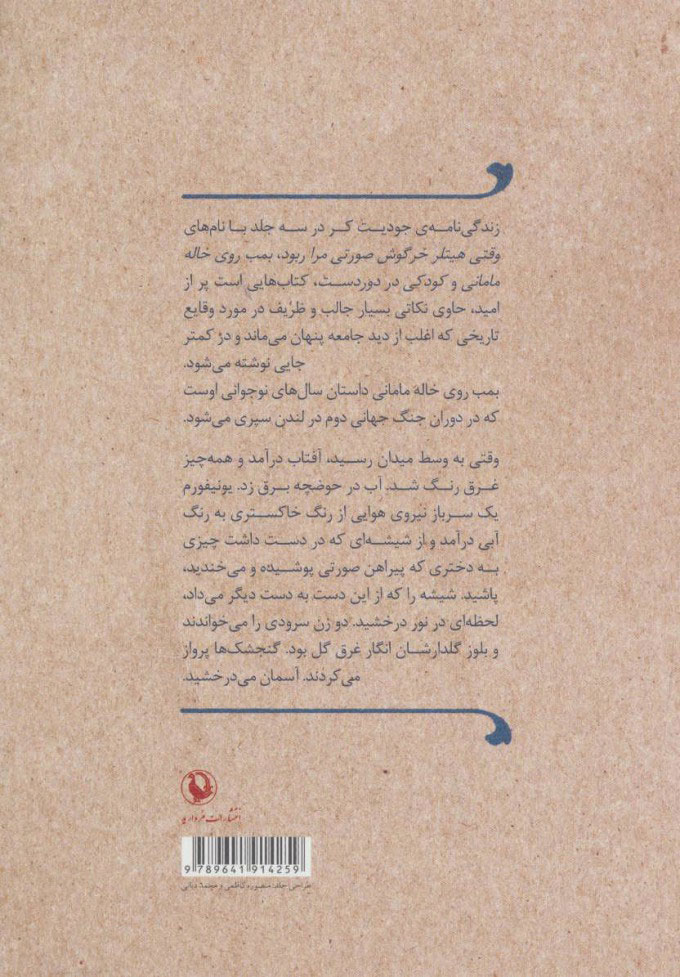 زندگی‌نامه‌ی جودیت کر در سه جلد با نام‌های
وقتی هیتلر خرگوش صورتی مرا ربود، بمب روی خاله
مامانی و کودکی در دوردست، کتاب‌هایی است پر از
امید، حاوی نکاتی بسیار جالب و ظریف در مورد وقایع
تاریخی که اغلب از دید جامعه پنهان می‌ماند و در کمتر
جایی نوشته می‌شود.
بمب روی خاله مامانی داستان سال‌های نوجوانی اوست
که در دوران جنگ جهانی دوم در لندن سپری می‌شود.
وقتی به وسط میدان رسید، آفتاب درآمد و همه‌چیز
غرق رنگ شد. آب در حوضچه برق زد. یونیفورم
یک سرباز نیروی هوایی از رنگ خاکستری به رنگ
آبی درآمد و از شیشه‌ای که در دست داشت چیزی
به دختری که پیراهن صورتی پوشیده و می‌خندید،
پاشید. شیشه را که از این دست به دست دیگر می‌داد،
لحظه‌ای در نور درخشید. دو زن سرودی را می‌خواندند
و بلوز گلدارشان انگار غرق گل بود. گنجشک‌ها پرواز
می‌کردند. آسمان می‌درخشید.
انتشارات مروارید
9 789641 914259
طراحی جلد: منصوره کاظمی و